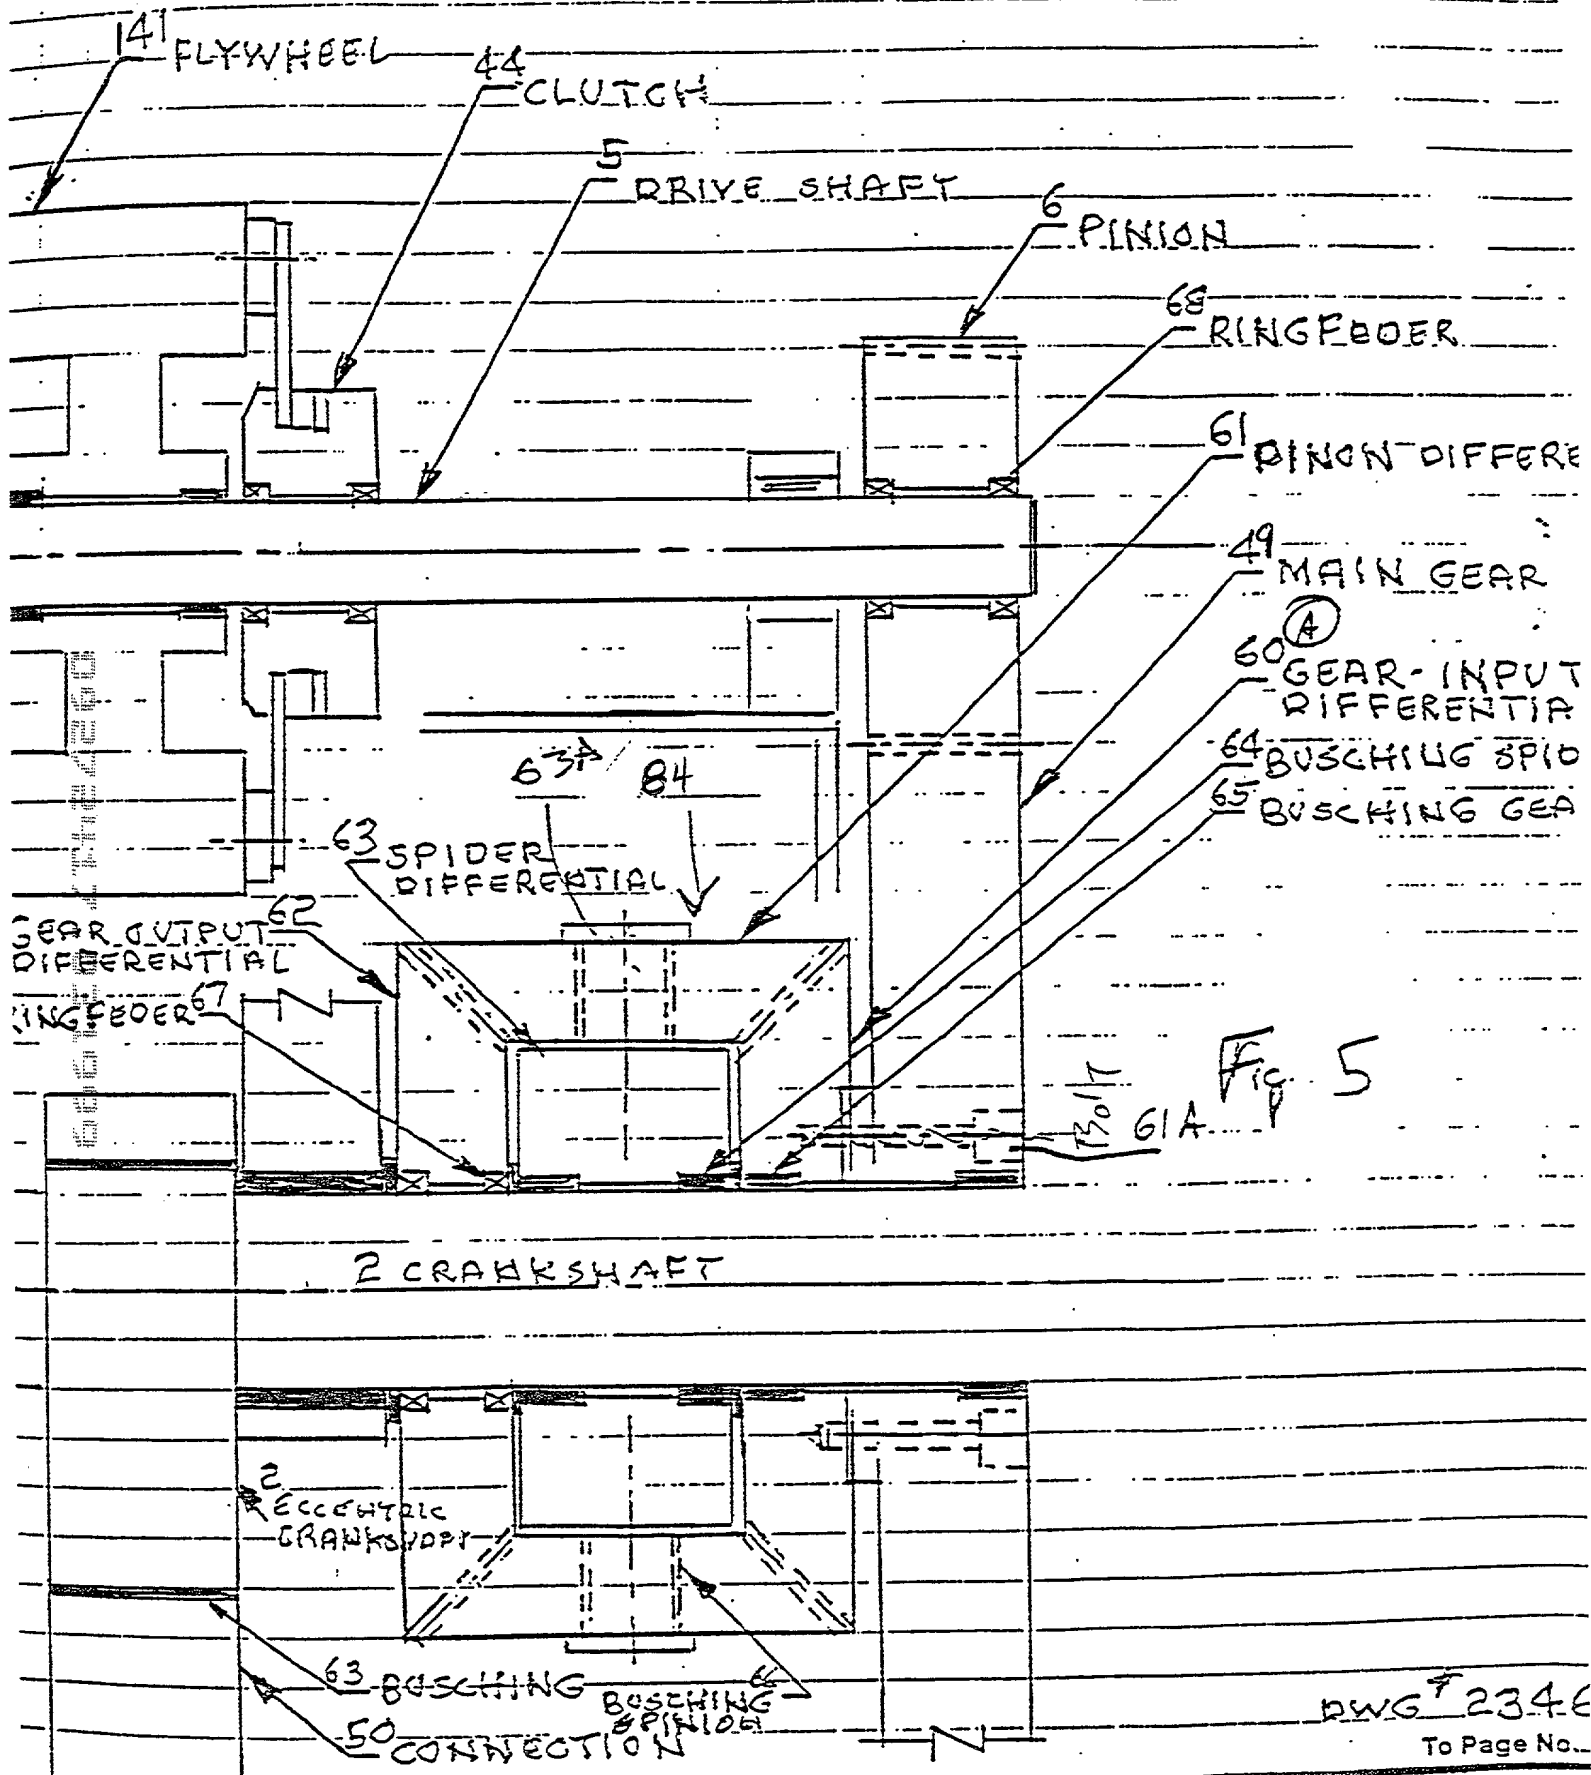 141 FLYWHEEL
44 CLUTCH
5 DRIVE SHAFT
6 PINION
68 RINGFEDER
61 PINON DIFFERE
49 MAIN GEAR
A
60 GEAR-INPUT
DIFFERENTIA
64 BUSCHING SPID
65 BUSCHING GEA
63A 84
63 SPIDER
DIFFERENTIAL
62
GEAR OUTPUT
DIFFERENTIAL
INGFEDER 67
Fig. 5
Bolt
61A
2 CRANKSHAFT
2
ECCENTRIC
CRANKSHAFT
63 BUSCHING
BUSCHING
PINION
50 CONNECTION
DWG # 2346
To Page No.